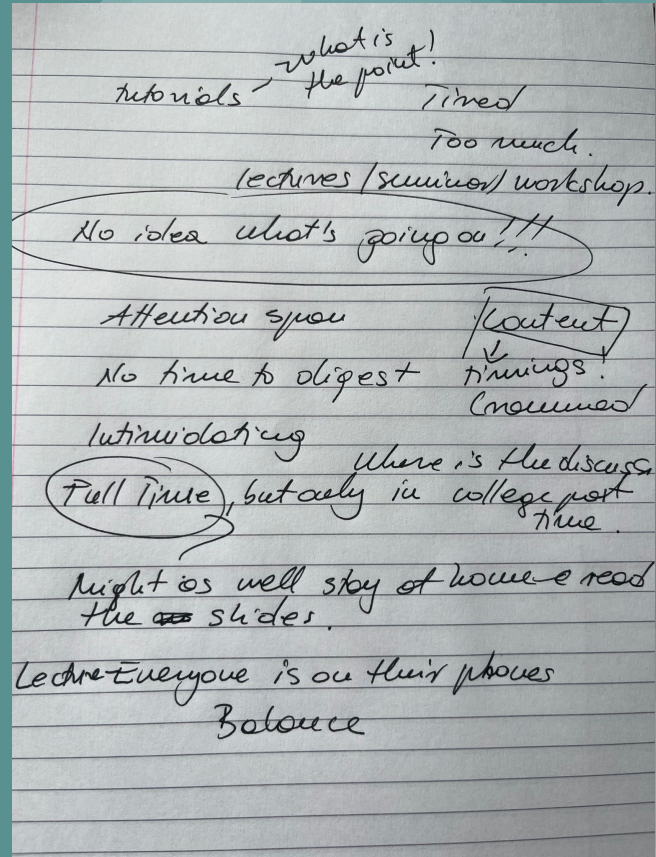 What is
the point!
tutorials
Tired
Too much.
lectures/seminar/workshop.
No idea what's going on!!!
Attention span
Content
No time to digest
timings!
Crammed
Intimidating
Where is the discuss
Full Time, but only in college part
time.
Might as well stay at home & read
the slides.
Lecture Everyone is on their phones
Balance